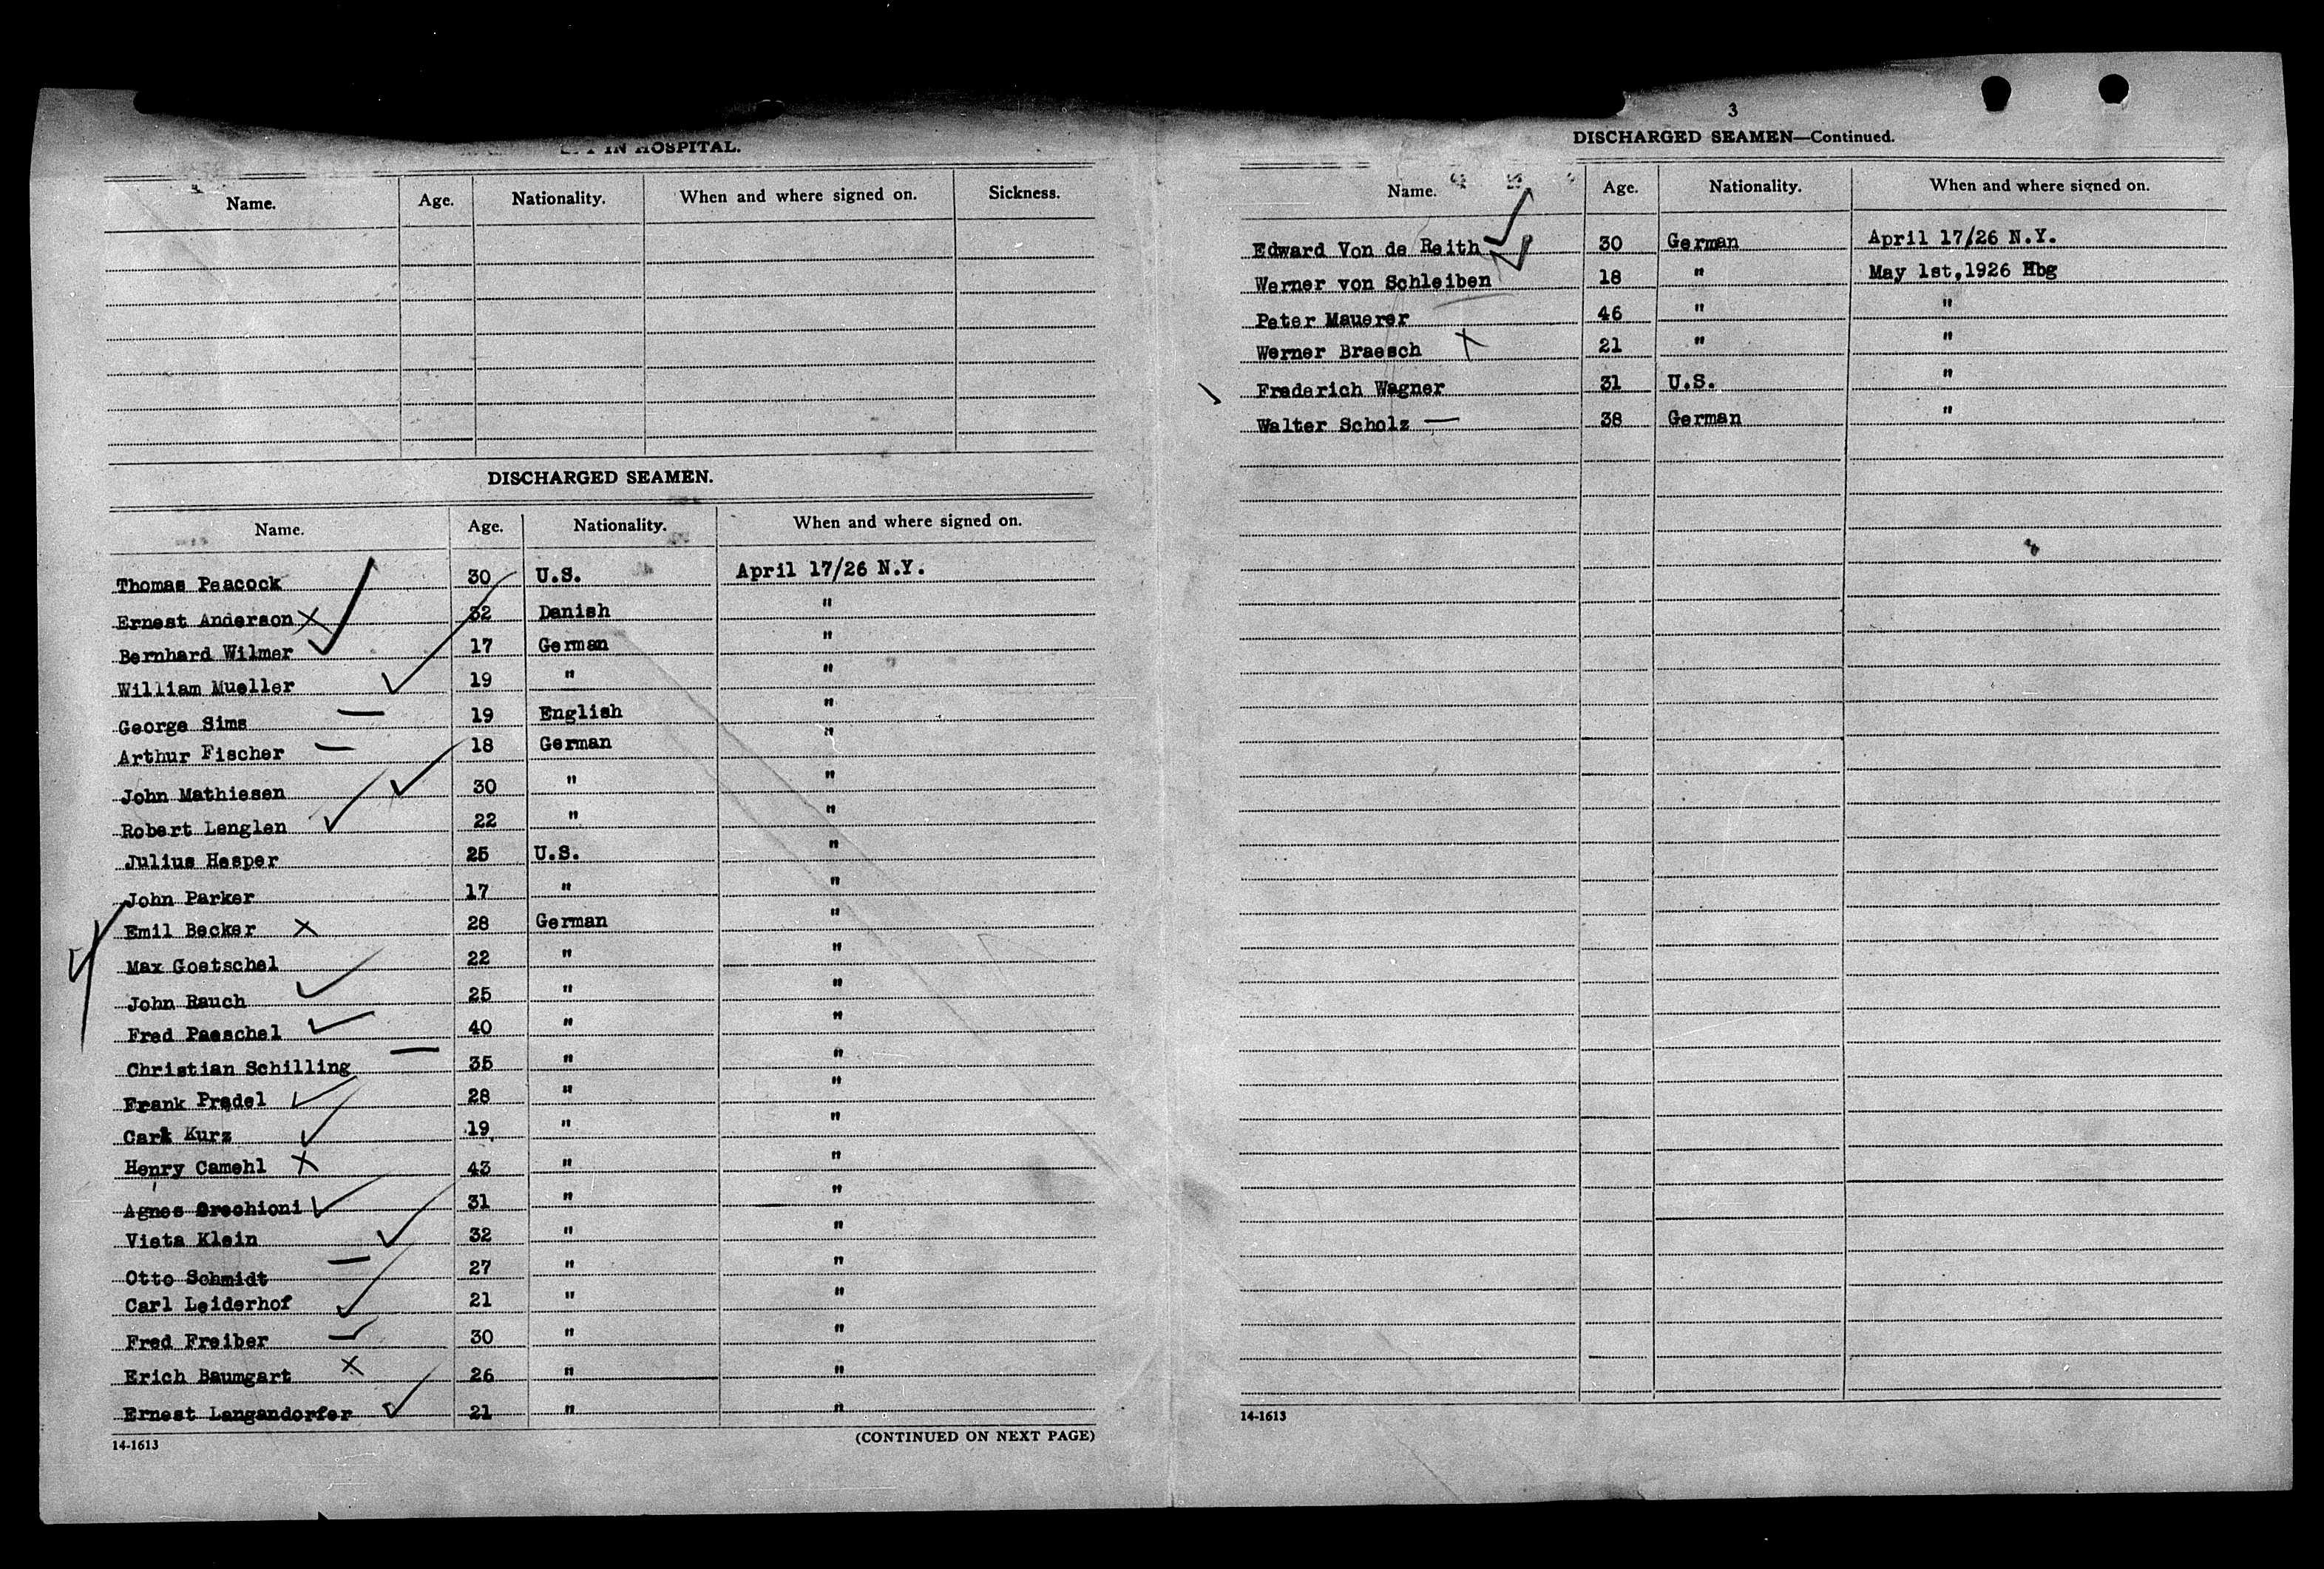 IN HOSPITAL.
Name. Age. Nationality. When and where signed on. Sickness.
DISCHARGED SEAMEN.
Name. Age. Nationality. When and where signed on.
Thomas Peacock 30 U.S. April 17/26 N.Y.
Ernest Anderson 32 Danish "
Bernhard Wilmer 17 German "
William Mueller 19 " "
George Sims 19 English "
Arthur Fischer 18 German "
John Mathiesen 30 " "
Robert Lenglen 22 " "
Julius Hesper 25 U.S. "
John Parker 17 " "
Emil Becker 28 German "
Max Goetschel 22 " "
John Rauch 25 " "
Fred Paeschel 40 " "
Christian Schilling 35 " "
Frank Pradel 28 " "
Carl Kurz 19 " "
Henry Camehl 43 " "
Agnes 31 " "
Vieta Klein 32 " "
Otto Schmidt 27 " "
Carl Leiderhof 21 " "
Fred Freiber 30 " "
Erich Baumgart 26 " "
Ernest Langandorfer 21 " "
14-1613 (CONTINUED ON NEXT PAGE)
3
DISCHARGED SEAMEN—Continued.
Name. Age. Nationality. When and where signed on.
Edward Von de Reith 30 German April 17/26 N.Y.
Werner von Schleiben 18 " May 1st,1926 Hbg
Peter Mauerer 46 " "
Werner Braesch 21 " "
Frederich Wagner 31 U.S. "
Walter Scholz 38 German "
14-1613